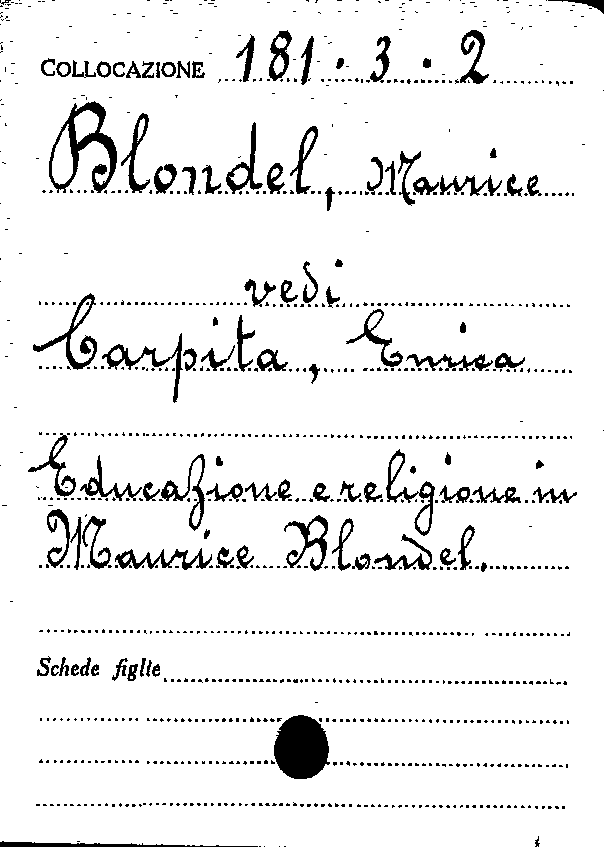 COLLOCAZIONE 181 · 3 · 2
Blondel, Maurice
vedi
Carpita, Enrica
Educazione e religione in
Maurice Blondel.
Schede figlie